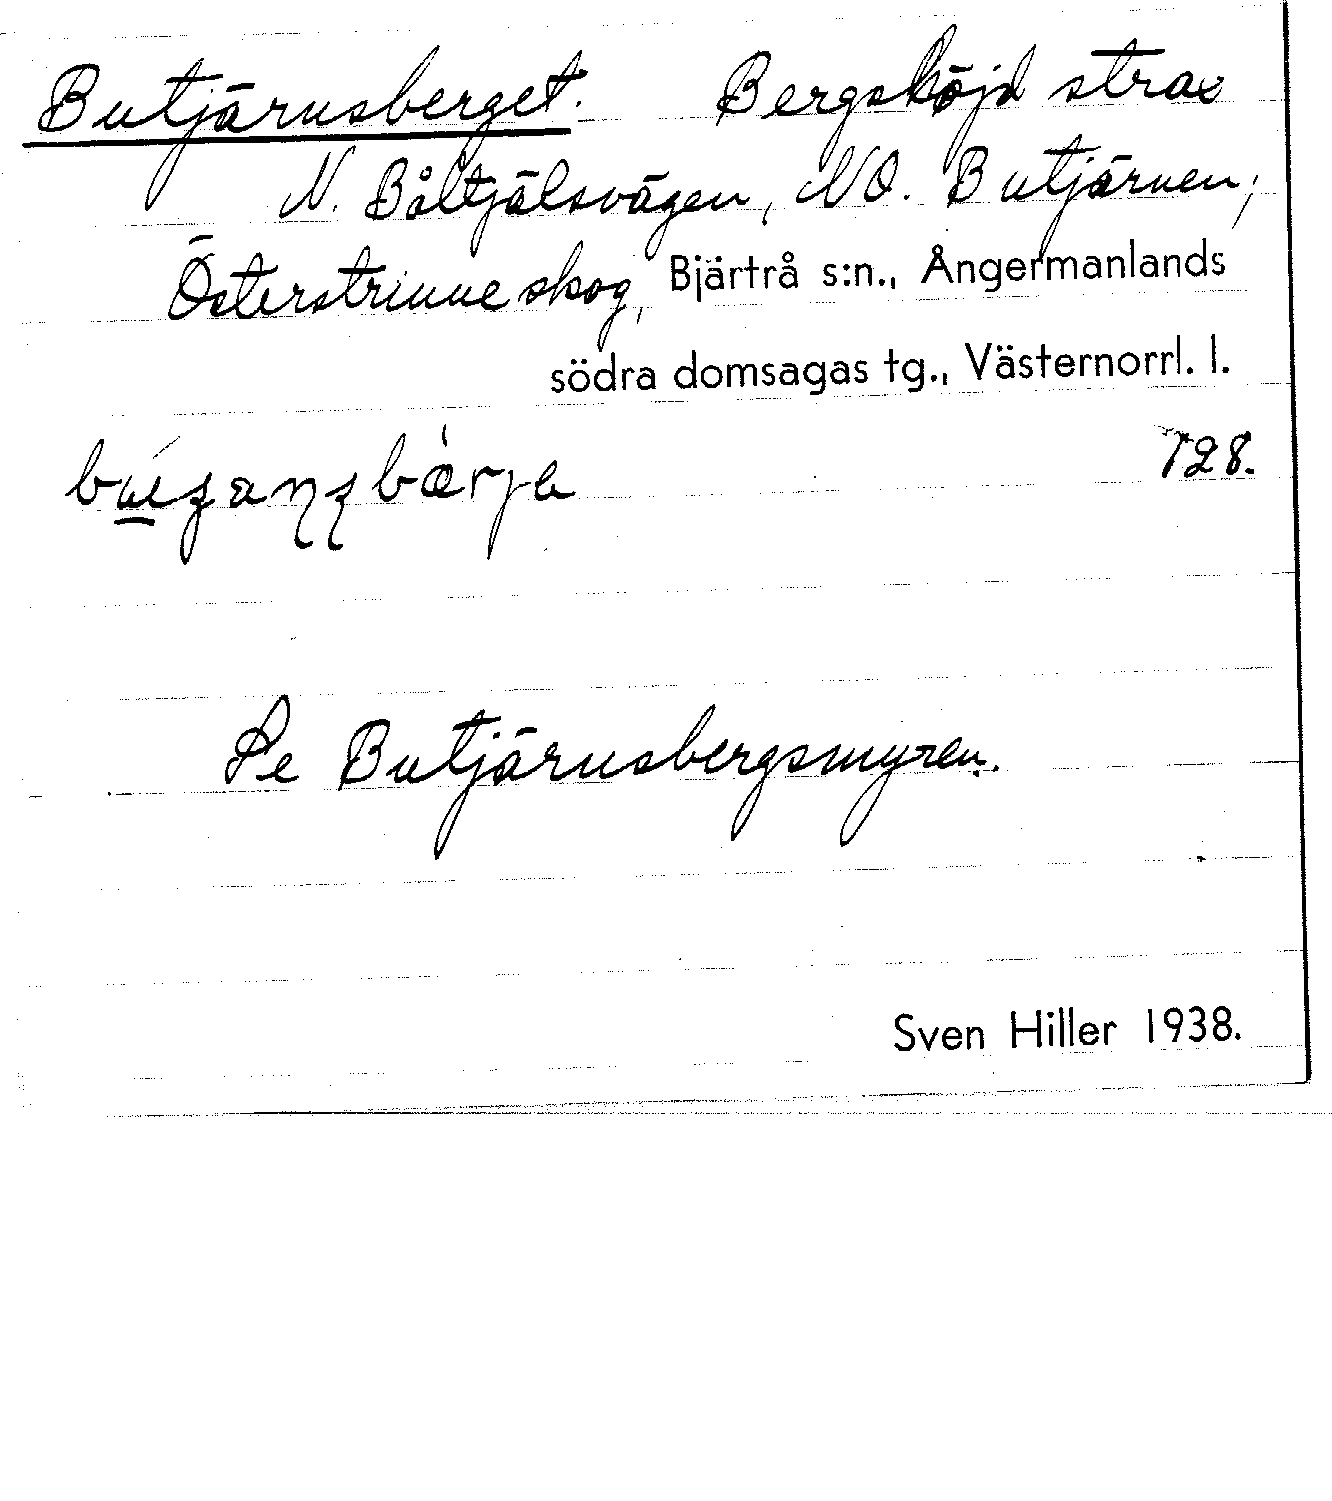 Butjärnsberget. Bergshöjd strax
N. Båltjälsvägen, NO. Butjärnen,
Österstrinne skog, Bjärtrå s:n., Ångermanlands
södra domsagas tg., Västernorrl. l.
128.
Se Butjärnsbergsmyren.
Sven Hiller 1938.